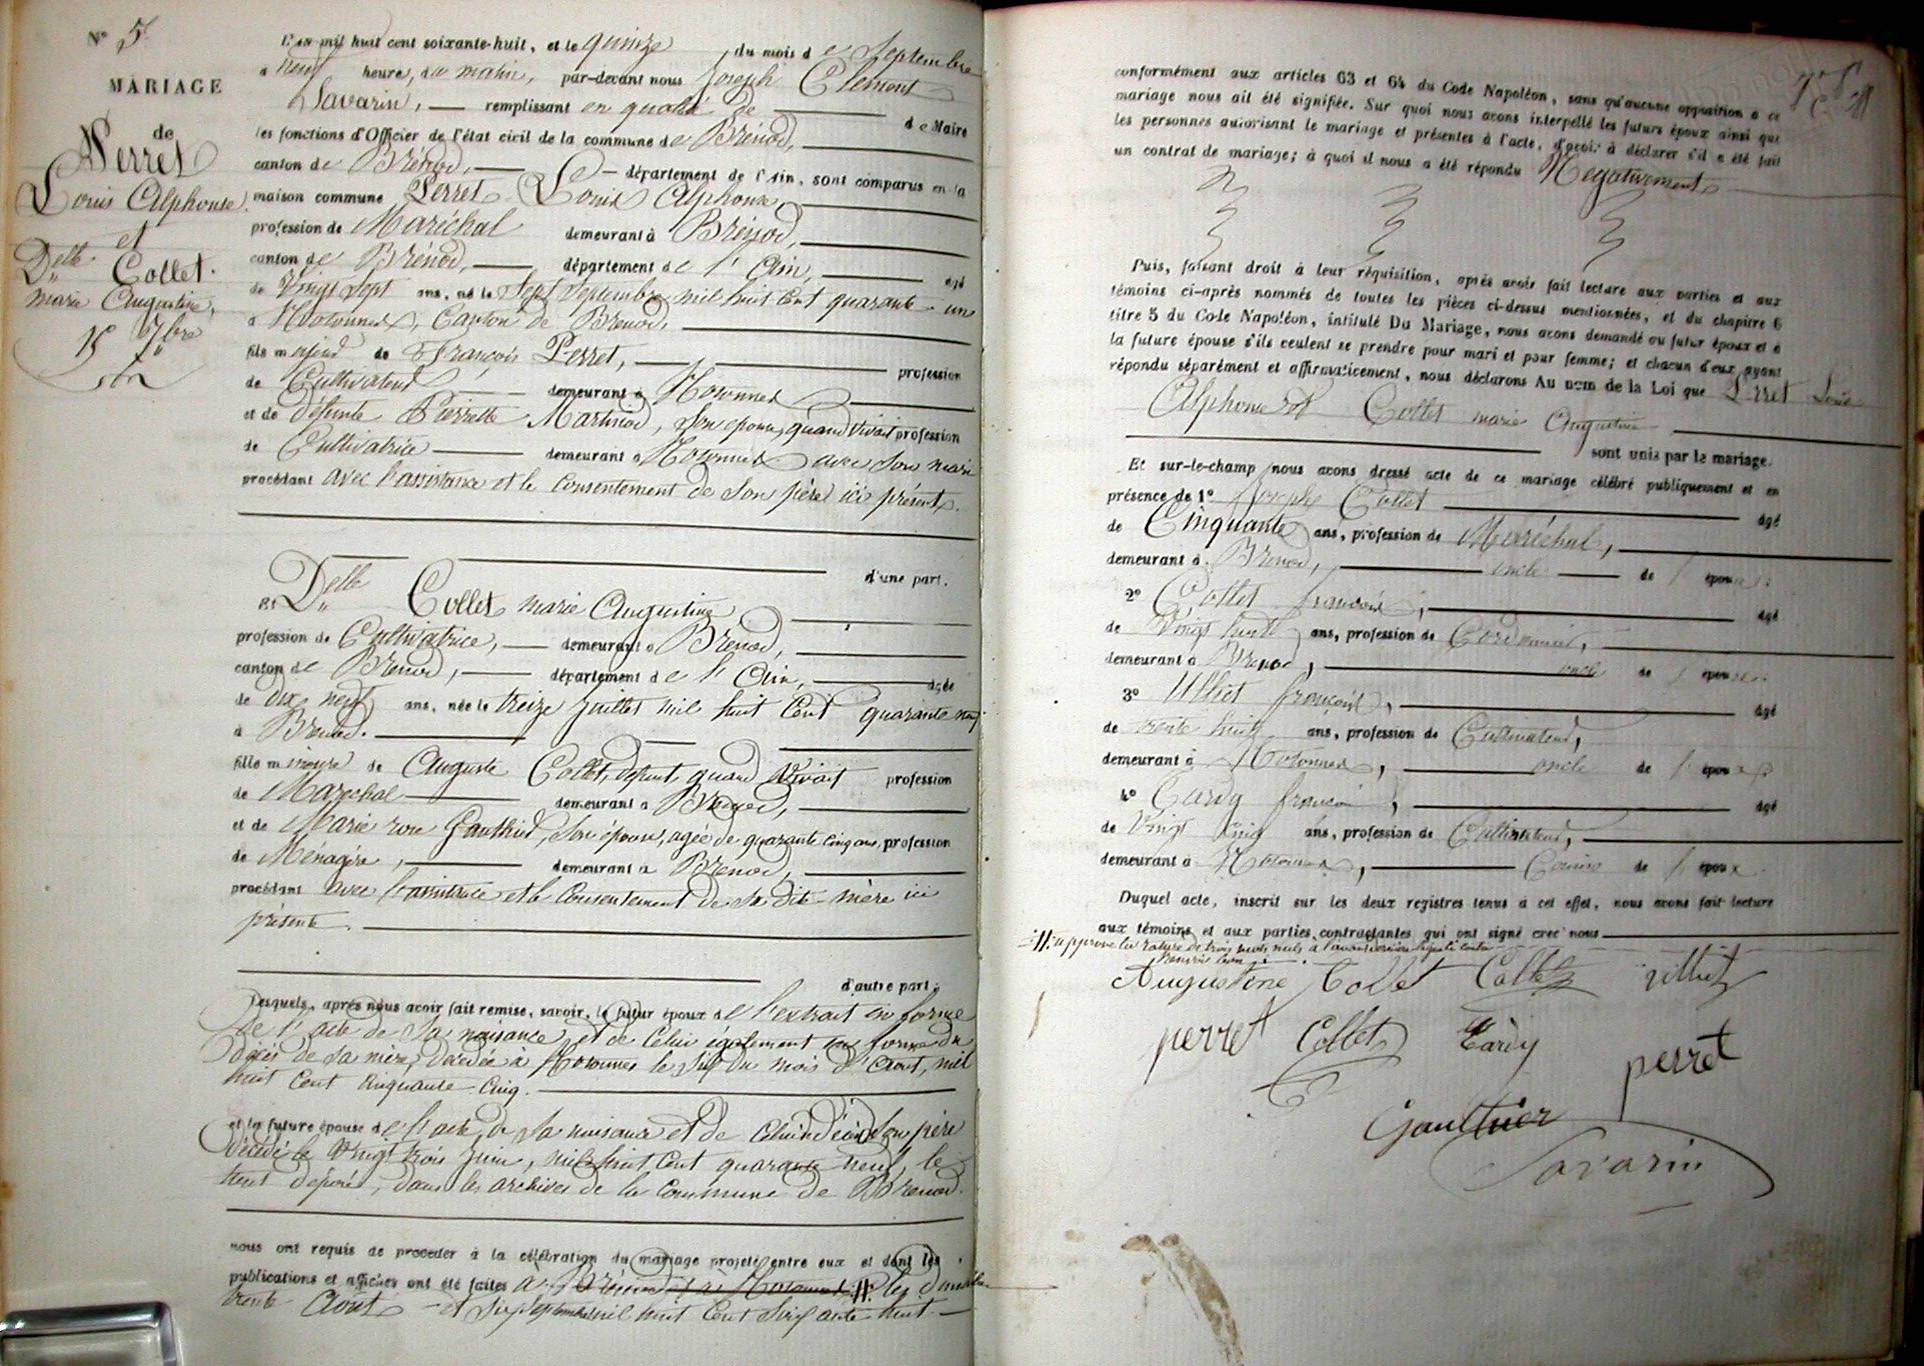 N° 5
MARIAGE
de
Perret
Louis Alphonse
et
Delle Collet.
marie Augustine,
15 7bre
L'AN mil huit cent soixante-huit, et le quinze du mois de Septembre
à neuf heure, du matin, par-devant nous Joseph Clément
Savarin, remplissant en qualité de de Maire
les fonctions d'Officier de l'état civil de la commune de Brénod,
canton de Brénod, département de l'Ain, sont comparus en la
maison commune Perret Louis Alphonse,
profession de Maréchal demeurant à Brénod,
canton de Brénod, département de l'Ain, âgé
de Vingt Sept ans, né le Sept Septembre mil huit Cent quarante un
à Hotonnes, Canton de Brenod,
fils majeur de François Perret, profession
de Cultivateur demeurant à Hotonnes
et de défunte Pierrette Martinod, son épouse, quand vivait profession
de Cultivatrice demeurant à Hotonnes avec son mari
procédant avec l'assistance et le Consentement de Son père ici présent.
d'une part.
Et Delle Collet marie Augustine
profession de Cultivatrice, demeurant à Brenod,
canton de Brénod, département de l'Ain, âgée
de dix neuf ans, née le treize Juillet mil huit Cent quarante neuf
à Brenod.
fille mineure de Auguste Collet, défunt, quand Vivait profession
de Marechal demeurant à Brenod,
et de Marie rose Gauthier, Son épouse, agée de quarante Cinq ans, profession
de Ménagère, demeurant à Brenod,
procédant avec l'assistance et le Consentement de Sa dite mère ici
présente.
d'autre part;
Lesquels, après nous avoir fait remise, savoir, le futur époux de l'extrait en forme
de l'acte de Sa naissance, et de Celui également en forme du
décès de Sa mère, décédée à Hotonnes le Six du mois d'Aout, mil
huit Cent Cinquante Cinq.
et la future épouse de l'acte de Sa naissance et de Celui de décès de Son père
décédé le Vingt trois Juin, mil huit Cent quarante neuf, le
tout déposé, dans les archives de la Commune de Brenod.
nous ont requis de procéder à la célébration du mariage projeté entre eux et dont les
publications et affiches ont été faites à Brénod et à Hotonnes les dimanches
trente Août et Six Septembre mil huit Cent Soixante huit.
conformément aux articles 63 et 64 du Code Napoléon, sans qu'aucune opposition à ce
mariage nous ait été signifiée. Sur quoi nous avons interpellé les futurs époux ainsi que
les personnes autorisant le mariage et présentes à l'acte, d'avoir à déclarer s'il a été fait
un contrat de mariage; à quoi il nous a été répondu Négativement
Puis, faisant droit à leur réquisition, après avoir fait lecture aux parties et aux
témoins ci-après nommés de toutes les pièces ci-dessus mentionnées, et du chapitre 6
titre 5 du Code Napoléon, intitulé Du Mariage, nous avons demandé au futur époux et à
la future épouse s'ils veulent se prendre pour mari et pour femme; et chacun d'eux ayant
répondu séparément et affirmativement, nous déclarons Au nom de la Loi que Perret Louis
Alphonse et Collet marie Augustine
sont unis par le mariage.
Et sur-le-champ nous avons dressé acte de ce mariage célébré publiquement et en
présence de 1° Joseph Collet âgé
de Cinquante ans, profession de Maréchal,
demeurant à Brenod, oncle de l'épouse
2° Collet françois, âgé
de Vingt huit ans, profession de Cordonnier,
demeurant à Brenod, oncle de l'épouse
3° françois, âgé
de trente huit ans, profession de Cultivateur,
demeurant à Hotonnes, oncle de l'époux
4° Tardy françois, âgé
de Vingt Cinq ans, profession de Cultivateur,
demeurant à Hotonnes, Cousin de l'époux
Duquel acte, inscrit sur les deux registres tenus à cet effet, nous avons fait lecture
aux témoins et aux parties contractantes qui ont signé avec nous
approuvé la rature de trois mots nuls à l'avant dernière ligne
Augustine Collet Collet
perret Collet Tardy
perret
Gaulthier
Savarin